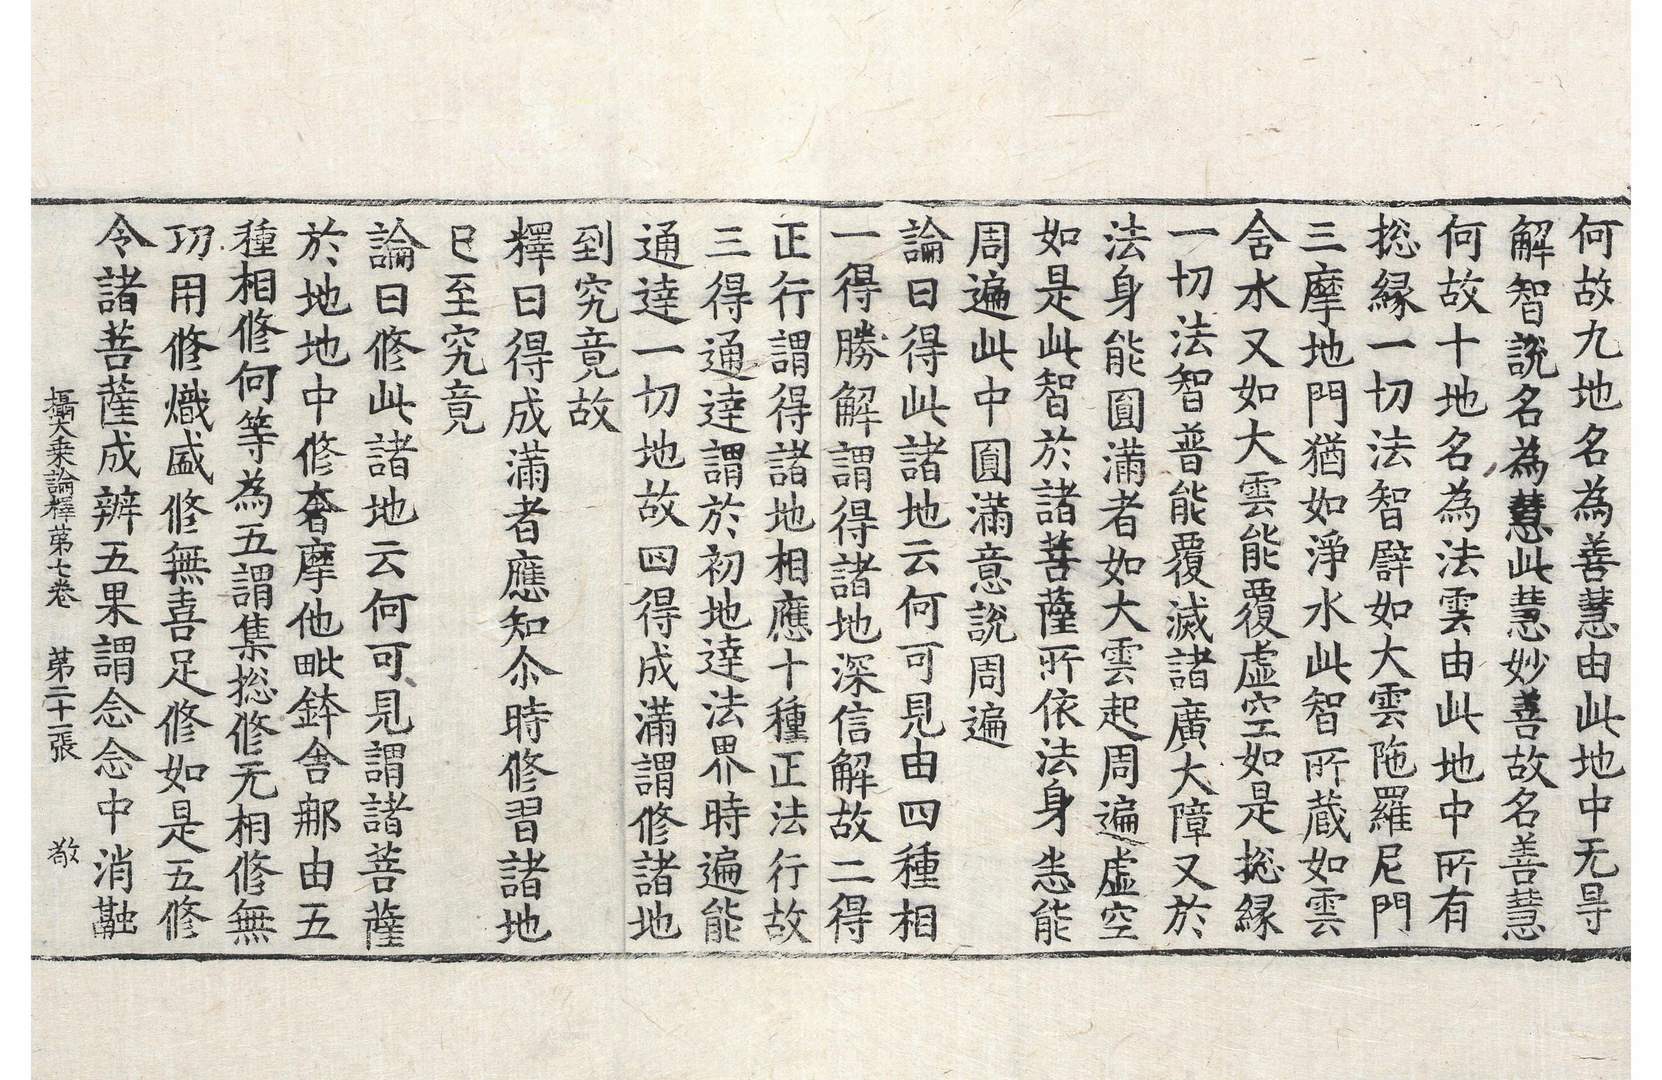 何故九地名為善慧由此地中无㝵
解智說名為慧此慧妙善故名善慧
何故十地名為法雲由此地中所有
揔縁一切法智譬如大雲陁羅尼門
三摩地門猶如淨水此智所蔵如雲
含水又如大雲能覆虛空如是揔縁
一切法智普能覆滅諸廣大障又於
法身能圎滿者如大雲起周遍虛空
如是此智於諸菩薩所依法身悉能
周遍此中圎滿意說周遍
論曰得此諸地云何可見由四種相
一得勝解謂得諸地深信解故二得
正行謂得諸地相應十種正法行故
三得通達謂於初地達法界時遍能
通達一切地故四得成滿謂修諸地
到究竟故
釋曰得成滿者應知尒時修習諸地
已至究竟
論曰修此諸地云何可見謂諸菩薩
於地地中修奢摩他毗鉢舍那由五
種相修何等為五謂集揔修无相修無
功用修熾盛修無喜足修如是五修
令諸菩薩成辦五果謂念念中消融
攝大乗論釋苐七卷　苐二十二張　敬